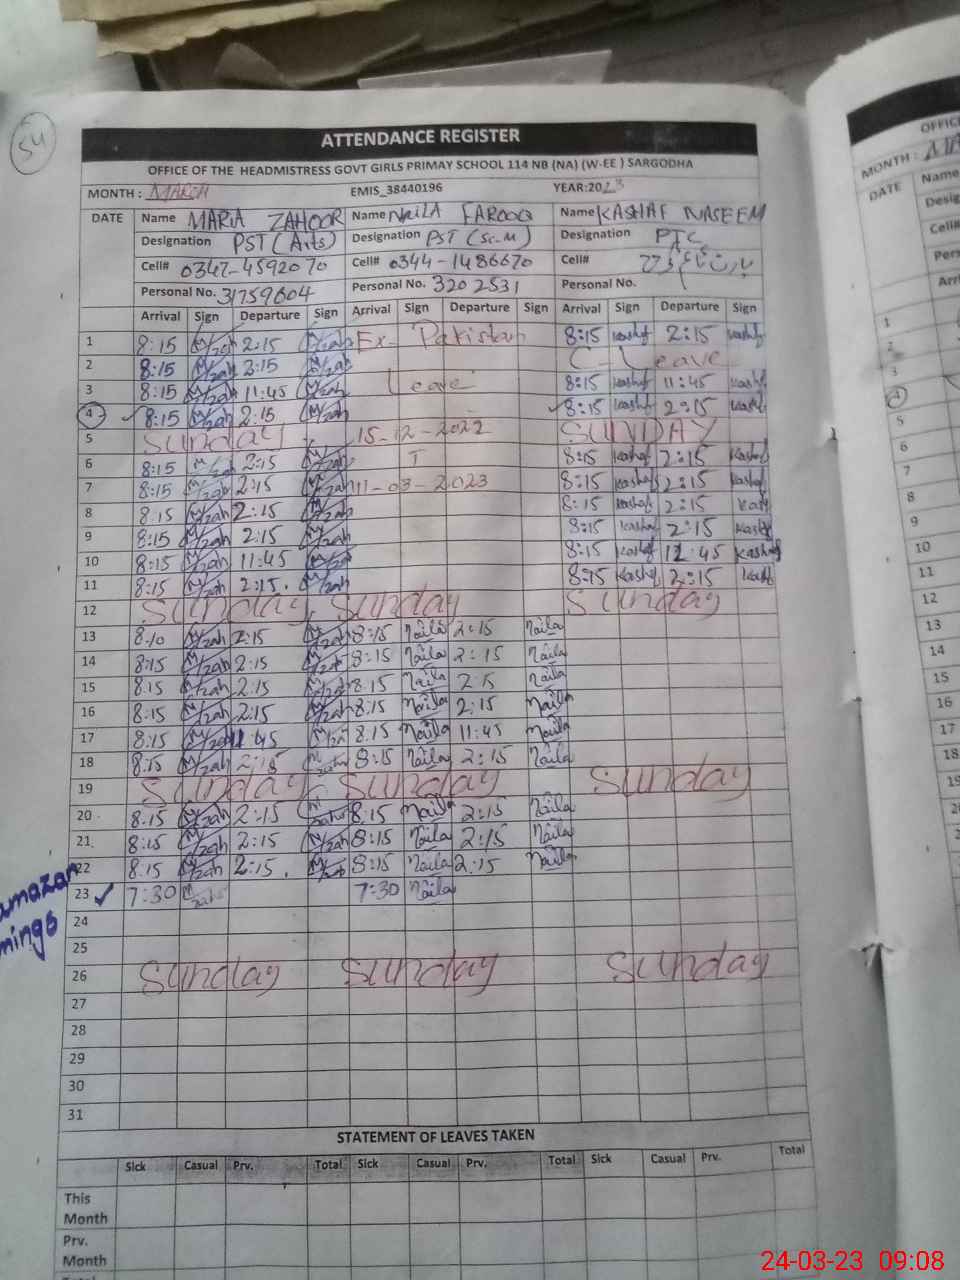 54
ATTENDANCE REGISTER
OFFICE OF THE HEADMISTRESS GOVT GIRLS PRIMAY SCHOOL 114 NB (NA) (W-EE ) SARGODHA
MONTH : MARCH EMIS_38440196 YEAR:2023
DATE Name MARIA ZAHOOR Name NAILA FAROOQ Name KASHAF NASEEM
Designation PST (Arts) Designation PST (Sc-M) Designation PTC
Cell# 0347-4592070 Cell# 0344-1486670 Cell#
Personal No. 31759604 Personal No. 3202531 Personal No.
Arrival Sign Departure Sign Arrival Sign Departure Sign Arrival Sign Departure Sign
1 8:15 M/zah 2:15 M/zah Ex- Pakistan 8:15 Kashf 2:15 Kashf
2 8:15 M/zah 2:15 M/zah C-Leave
3 8:15 M/zah 11:45 M/zah Leave 8:15 Kashf 11:45 Kashf
4 8:15 M/zah 2:15 M/zah 8:15 Kashf 2:15 Kashf
5 Sunday 15-12-2022 SUNDAY
6 8:15 M/zah 2:15 M/zah T 8:15 Kashf 2:15 Kashf
7 8:15 M/zah 2:15 M/zah 11-03-2023 8:15 Kashf 2:15 Kashf
8 8:15 M/zah 2:15 M/zah 8:15 Kashf 2:15 Kashf
9 8:15 M/zah 2:15 M/zah 8:15 Kashf 2:15 Kashf
10 8:15 M/zah 11:45 M/zah 8:15 Kashf 12:45 Kashf
11 8:15 M/zah 2:15. M/zah 8:15 Kashf 2:15 Kashf
12 Sunday Sunday Sunday
13 8:10 M/zah 2:15 M/zah 8:15 Naila 2:15 Naila
14 8:15 M/zah 2:15 M/zah 8:15 Naila 2:15 Naila
15 8:15 M/zah 2:15 M/zah 8:15 Naila 2:15 Naila
16 8:15 M/zah 2:15 M/zah 8:15 Naila 2:15 Naila
17 8:15 M/zah 11:45 M/zah 8:15 Naila 11:45 Naila
18 8:15 M/zah 2:15 M/zah 8:15 Naila 2:15 Naila
19 Sunday Sunday Sunday
20 8:15 M/zah 2:15 M/zah 8:15 Naila 2:15 Naila
21 8:15 M/zah 2:15 M/zah 8:15 Naila 2:15 Naila
22 8:15 M/zah 2:15. M/zah 8:15 Naila 2:15 Naila
amazan
23 7:30 M/zah 7:30 Naila
mings
24
25
26 Sunday Sunday Sunday
27
28
29
30
31
STATEMENT OF LEAVES TAKEN
Sick Casual Prv. Total Sick Casual Prv. Total Sick Casual Prv. Total
This
Month
Prv.
Month
OFFIC
MONTH : MA
DATE Name
Desig
Cell#
Per
Arri
1
2
3
4
5
6
7
8
9
10
11
12
13
14
15
16
17
18
19
24-03-23 09:08